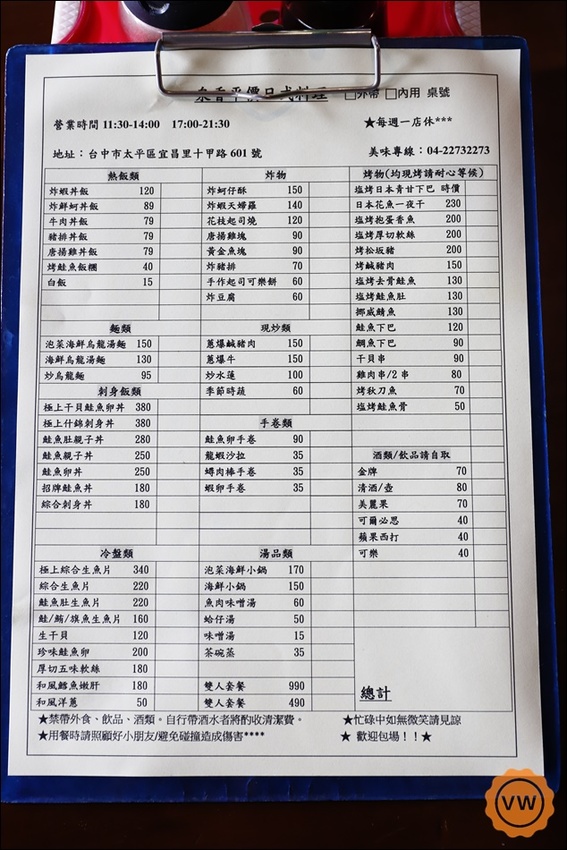 平價日式料理 □外帶 □內用 桌號
營業時間 11:30-14:00 17:00-21:30 ★每週一店休***
地址：台中市太平區宜昌里十甲路 601 號 美味專線：04-22732273
熱飯類
炸蝦丼飯 120
炸鮮蚵丼飯 89
牛肉丼飯 79
豬排丼飯 79
唐揚雞丼飯 79
烤鮭魚飯糰 40
白飯 15
麵類
泡菜海鮮烏龍湯麵 150
海鮮烏龍湯麵 130
炒烏龍麵 95
刺身飯類
極上干貝鮭魚卵丼 380
極上什錦刺身丼 380
鮭魚肚親子丼 280
鮭魚親子丼 250
鮭魚卵丼 250
招牌鮭魚丼 180
綜合刺身丼 180
冷盤類
極上綜合生魚片 340
綜合生魚片 220
鮭魚肚生魚片 220
鮭/鮪/旗魚生魚片 160
生干貝 120
珍味鮭魚卵 200
厚切五味軟絲 180
和風鱈魚嫩肝 180
和風洋蔥 50
炸物
炸蚵仔酥 150
炸蝦天婦羅 140
花枝起司燒 120
唐揚雞塊 90
黃金魚塊 90
炸豬排 70
手作起司可樂餅 60
炸豆腐 60
現炒類
蔥爆鹹豬肉 150
蔥爆牛 150
炒水蓮 100
季節時蔬 60
手卷類
鮭魚卵手卷 90
龍蝦沙拉 35
鱘肉棒手卷 35
蝦卵手卷 35
湯品類
泡菜海鮮小鍋 170
海鮮小鍋 150
魚肉味噌湯 60
蛤仔湯 50
味噌湯 15
茶碗蒸 35
雙人套餐 990
雙人套餐 490
烤物(均現烤請耐心等候)
塩烤日本青甘下巴 時價
日本花魚一夜干 230
塩烤抱蛋香魚 200
塩烤厚切軟絲 200
烤松坂豬 200
烤鹹豬肉 150
塩烤去骨鮭魚 130
塩烤鮭魚肚 130
挪威鯖魚 130
鮭魚下巴 120
鯛魚下巴 90
干貝串 90
雞肉串/2 串 80
烤秋刀魚 70
塩烤鮭魚骨 50
酒類/飲品請自取
金牌 70
清酒/壺 80
美麗果 70
可爾必思 40
蘋果西打 40
可樂 40
總計
★禁帶外食、飲品、酒類。自行帶酒水者將酌收清潔費。 ★忙碌中如無微笑請見諒
★用餐時請照顧好小朋友/避免碰撞造成傷害**** ★ 歡迎包場！！★
VW